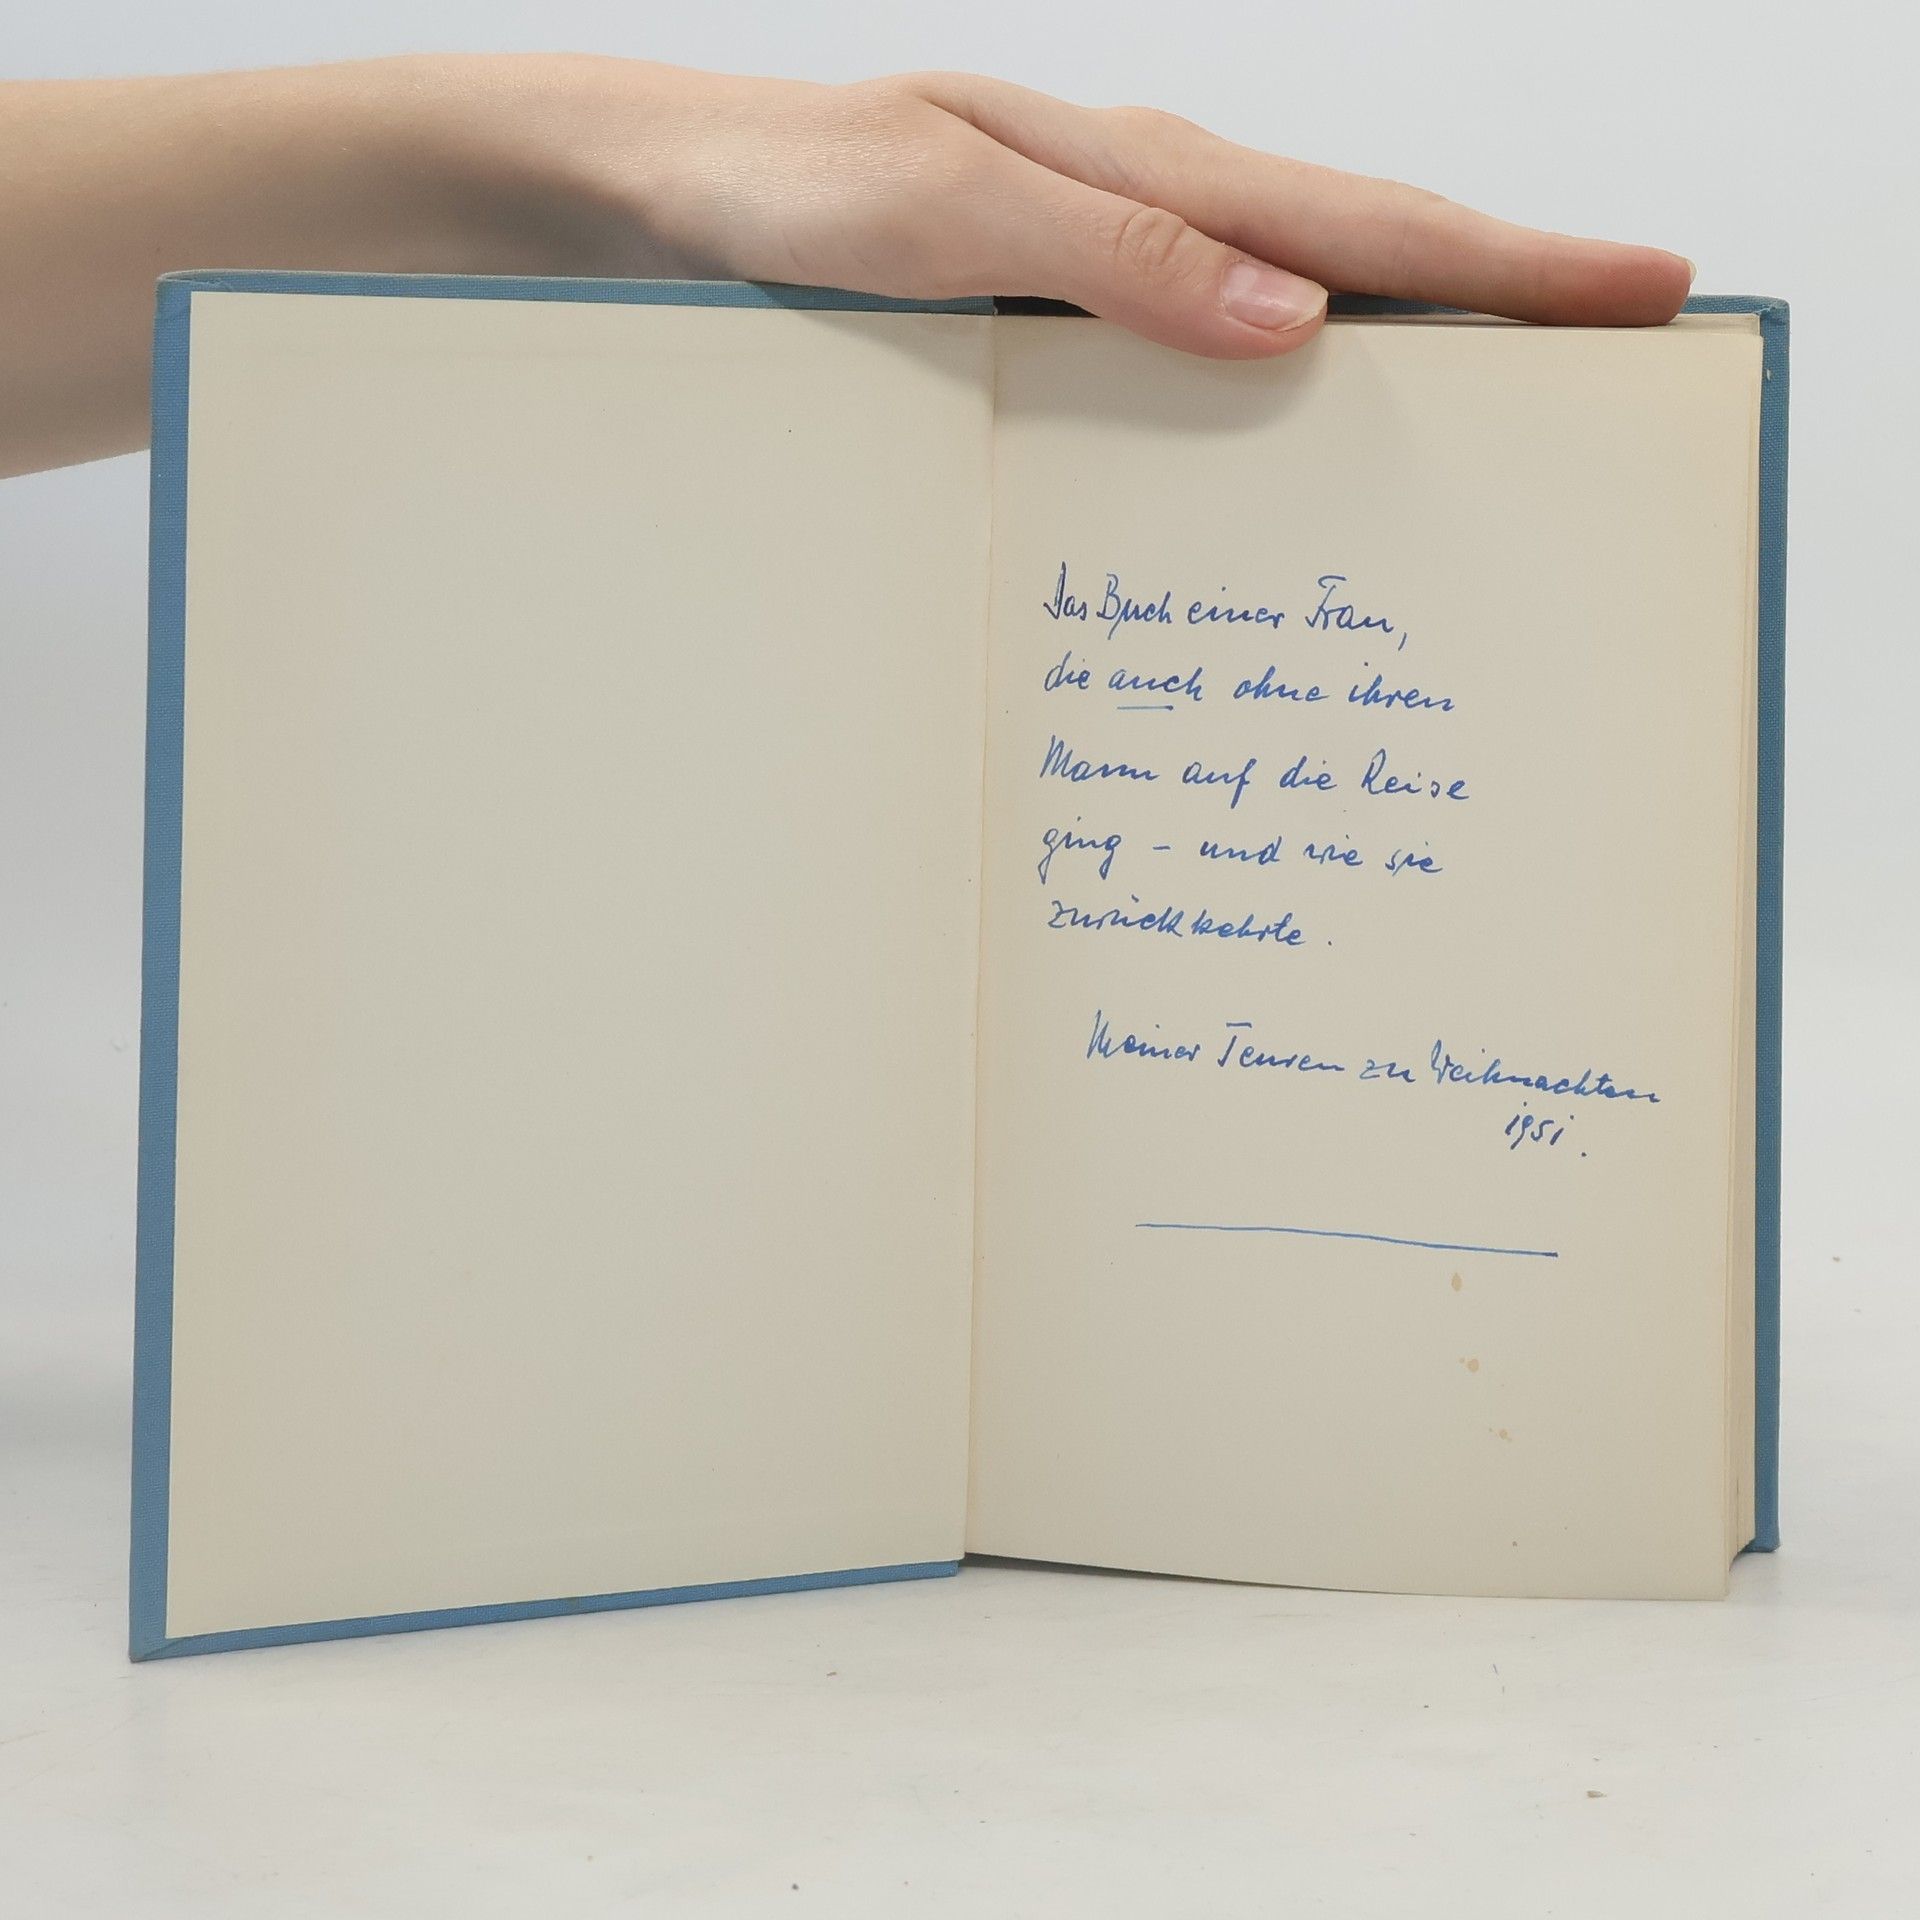 Das Buch einer Frau,
die auch ohne ihren
Mann auf die Reise
ging - und wie sie
zurückkehrte.
Meiner Teuren zu Weihnachten
1951.